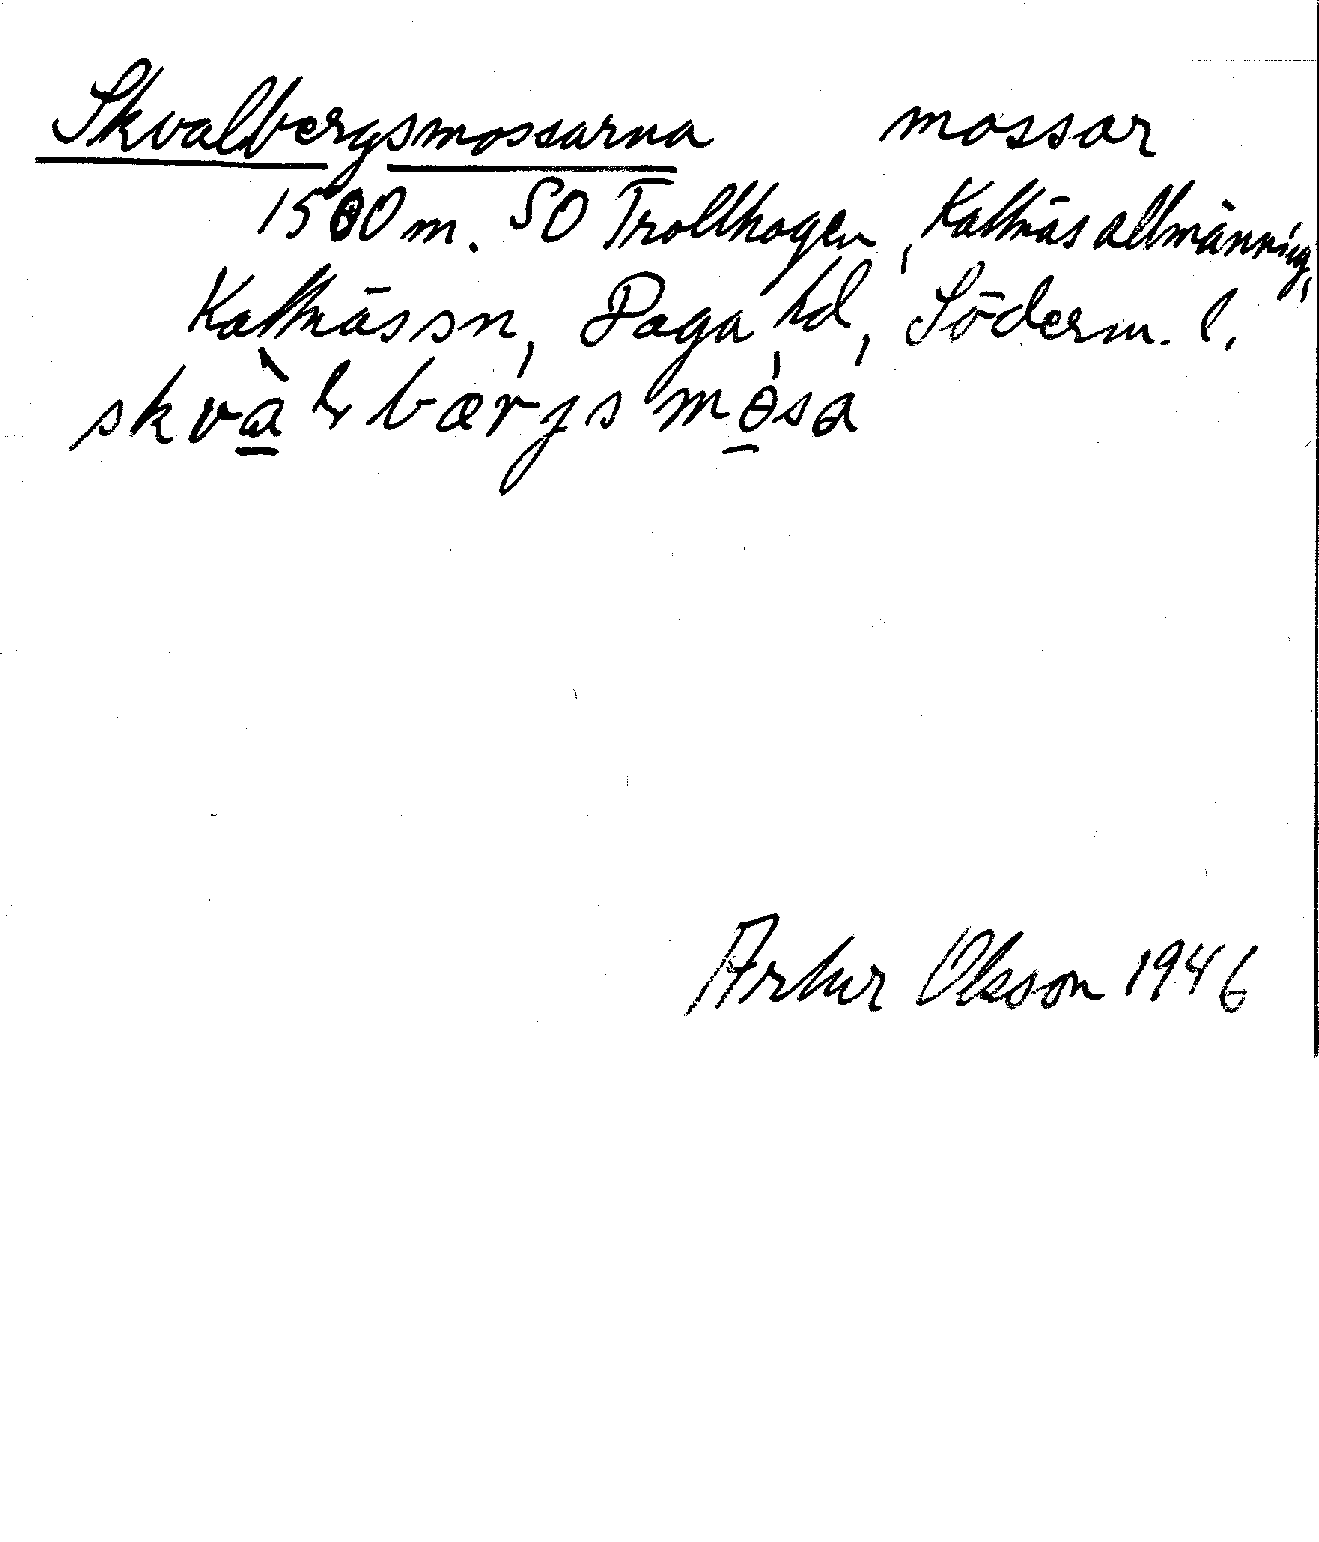 Skvalbergsmossarna mossar
1500 m. SO Trollhagen, Kattnäs allmänning,
Kattnäs sn, Daga hd, Söderm. l.
skvàlbærjsmosa
Artur Olsson 1946